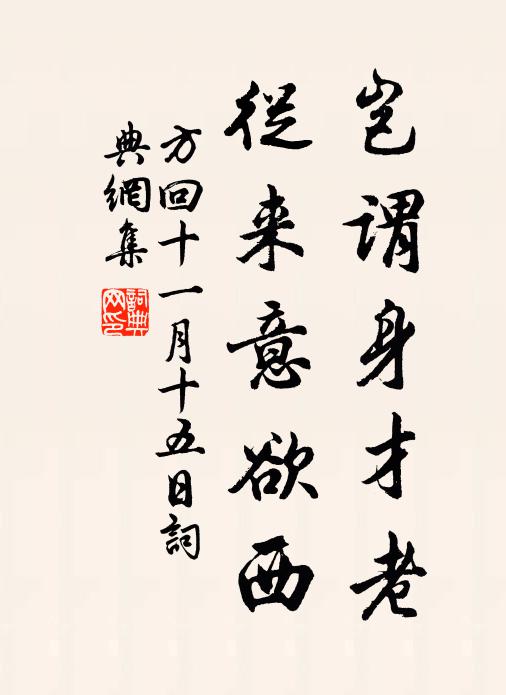 豈謂身才老
從来意欲西
方回十一月十五日詞
典網集
詞典网印